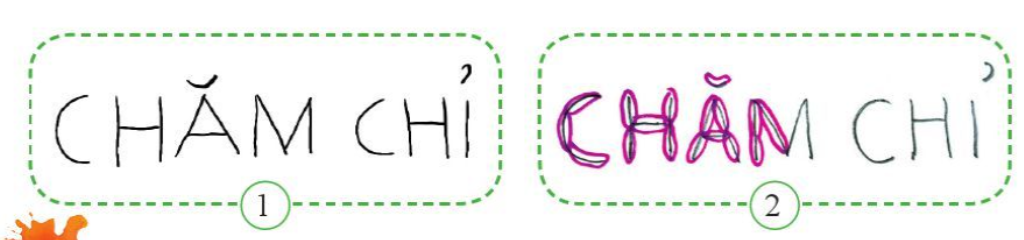 CHĂM CHỈ
CHĂM CHỈ
1
2